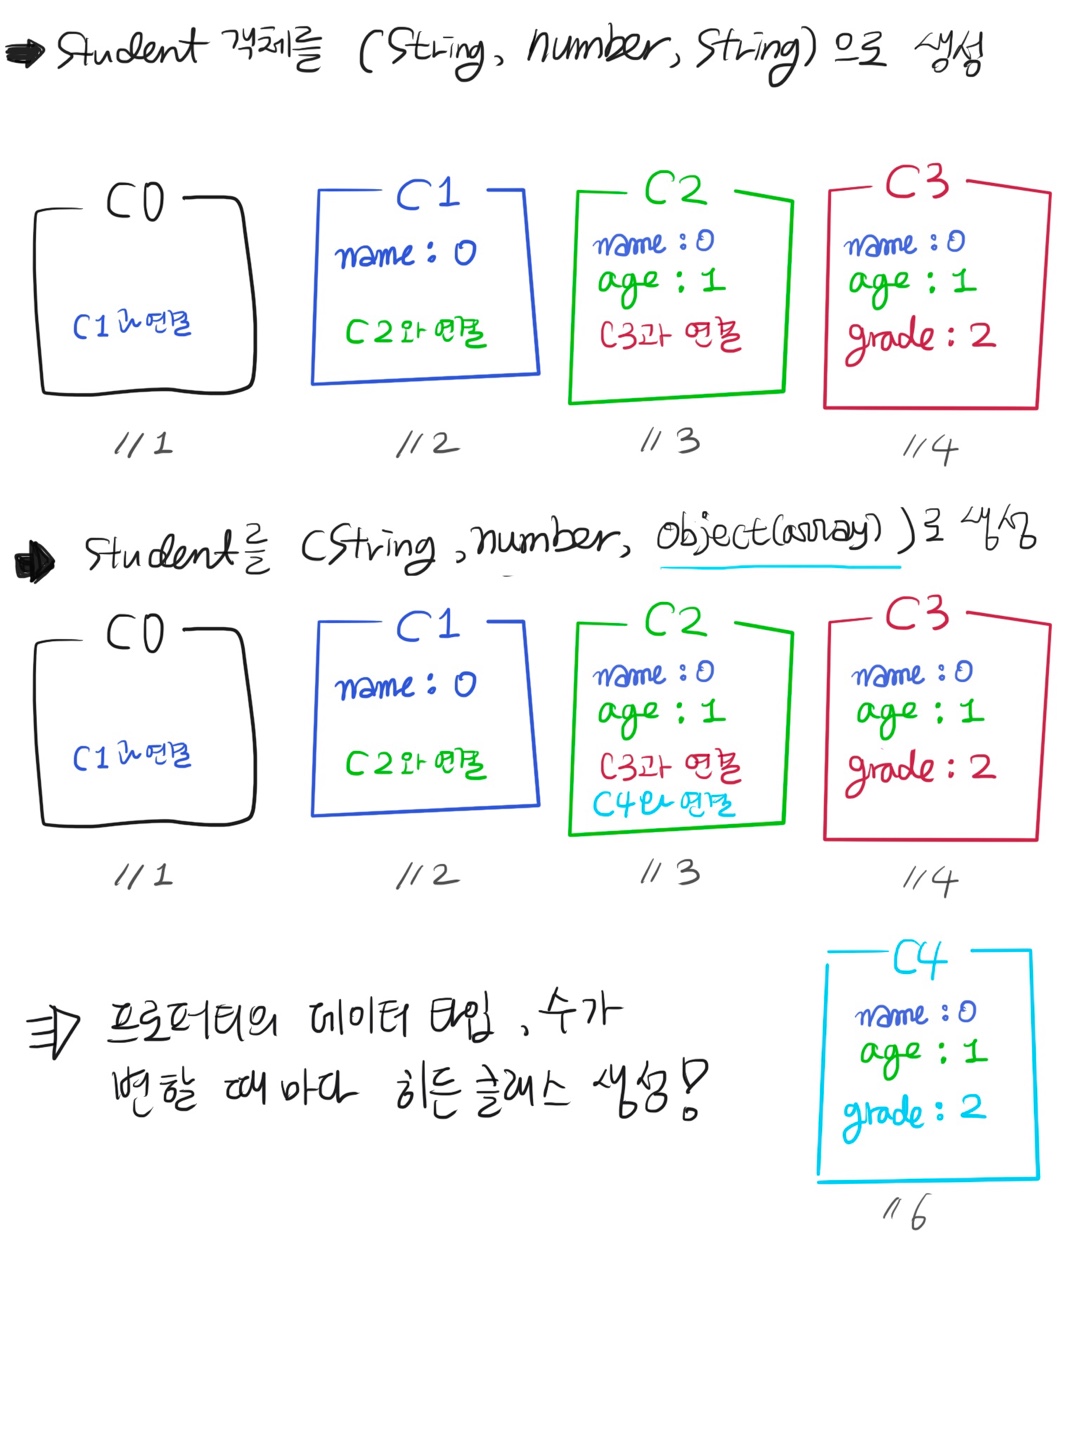 ➡ Student 객체를 (String, number, String) 으로 생성
C0
C1과 연결
//1
C1
name : 0
C2와 연결
//2
C2
name : 0
age : 1
C3과 연결
//3
C3
name : 0
age : 1
grade : 2
//4
➡ Student를 (String, number, Object(array))로 생성
C0
C1과 연결
//1
C1
name : 0
C2와 연결
//2
C2
name : 0
age : 1
C3과 연결
C4와 연결
//3
C3
name : 0
age : 1
grade : 2
//4
C4
name : 0
age : 1
grade : 2
//6
프로퍼티의 데이터 타입, 수가
변할 때 마다 히든 클래스 생성!